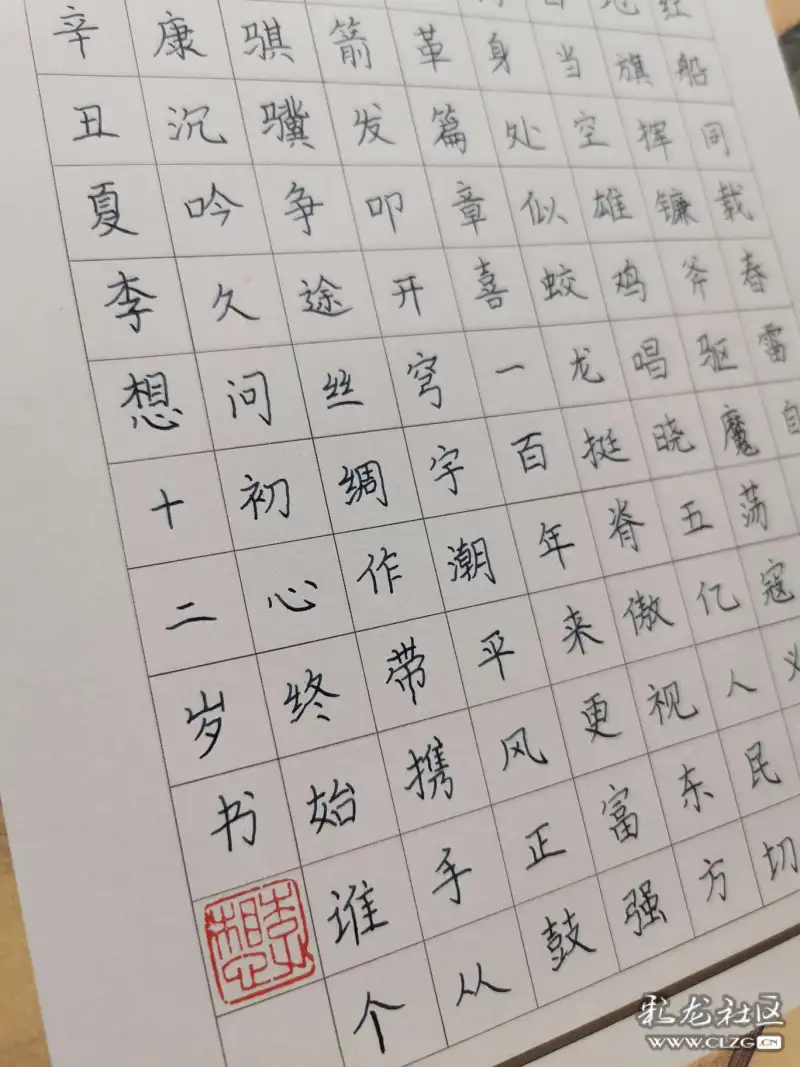 船同载春雷自
旗挥镰斧驱魔荡寇
当空雄鸡唱晓五亿人民切
身处似蛟龙挺脊傲视东方
革篇章喜一百年来更富强
箭发叩开穹宇潮平风正鼓
骐骥争途丝绸作带携手从
康沉吟久问初心终始谁个
辛丑夏李想十二岁书
李想
彩龙社区
www.CLZG.CN